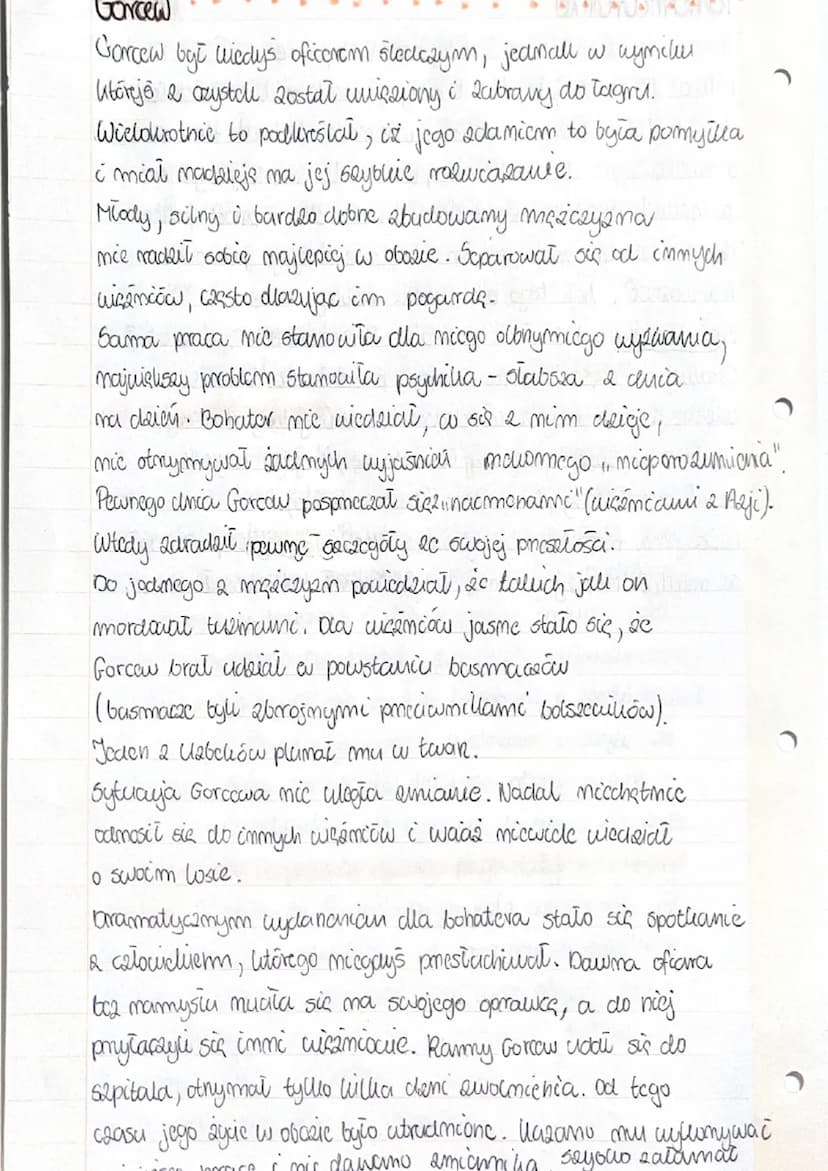 Gorcew
Gorcew był kiedyś oficerem śledczym, jednak w wyniku
którejś z czystek został uwięziony i zabrany do łagru.
Wielokrotnie to podkreślał, iż jego zdaniem to była pomyłka
i miał nadzieję na jej szybkie rozwiązanie.
Młody, silny i bardzo dobrze zbudowany mężczyzna
nie radził sobie najlepiej w obozie. Separował się od innych
więźniów, często okazując im pogardę.
Sama praca nie stanowiła dla niego olbrzymiego wyzwania,
największy problem stanowiła psychika - słabsza z dnia
na dzień. Bohater nie wiedział, co się z nim dzieje,
nie otrzymywał żadnych wyjaśnień "nieporozumienia".
Pewnego dnia Gorcew posprzeczał się z „nacmenami" (więźniami z Azji).
Wtedy zdradził pewne szczegóły ze swojej przeszłości.
Do jednego z mężczyzn powiedział, że takich jak on
mordował tuzinami. Dla więźniów jasne stało się, że
Gorcew brał udział w powstaniu basmaczów
(basmacze byli zbrojnymi przeciwnikami bolszewików).
Jeden z Uzbeków plunął mu w twarz.
Sytuacja Gorcewa nie uległa zmianie. Nadal niechętnie
odnosił się do innych więźniów i wciąż niewiele wiedział
o swoim losie.
Dramatycznym wydarzeniem dla bohatera stało się spotkanie
z człowiekiem, którego niegdyś przesłuchiwał. Dawna ofiara
bez namysłu rzuciła się na swojego oprawcę, a do niej
przyłączyli się inni więźniowie. Ranny Gorcew udał się do
szpitala, otrzymał tylko kilka dni zwolnienia. Od tego
czasu jego życie w obozie było utrudnione. Kazano mu wykonywać
prace i nie dawano zmiennika, szybko załamał